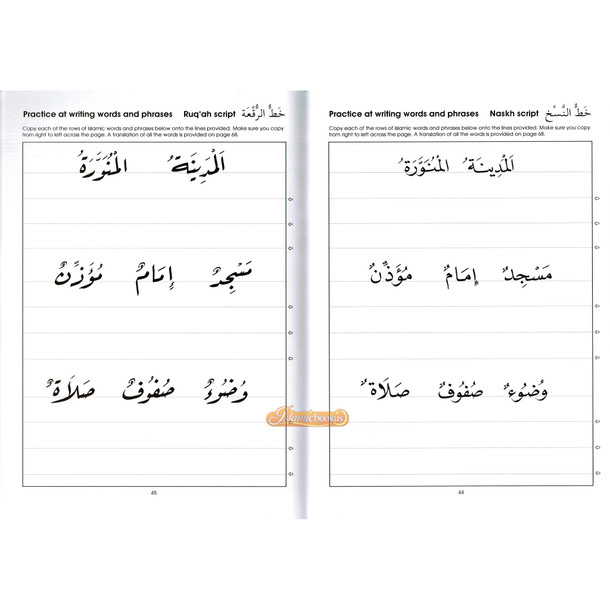 Practice at writing words and phrases Ruq'ah script خَطُّ الرُّقْعَة
Copy each of the rows of Islamic words and phrases below onto the lines provided. Make sure you copy
from right to left across the page. A translation of all the words is provided on page 68.
اَلْمَدِينَةُ الْمُنَوَّرَةُ
مَسْجِدٌ إِمَامٌ مُؤَذِّنٌ
وُضُوءٌ صُفُوفٌ صَلَاةٌ
45
Practice at writing words and phrases Naskh script خَطُّ النَّسْخ
Copy each of the rows of Islamic words and phrases below onto the lines provided. Make sure you copy
from right to left across the page. A translation of all the words is provided on page 68.
اَلْمَدِينَةُ الْمُنَوَّرَةُ
مَسْجِدٌ إِمَامٌ مُؤَذِّنٌ
وُضُوءٌ صُفُوفٌ صَلَاةٌ
44
Islamicbookus